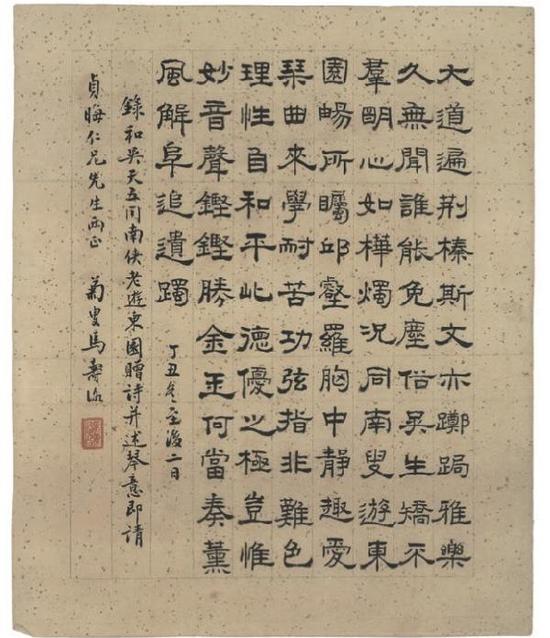 大道遍荆榛斯文亦躑跼雅樂
久無聞誰能免塵俗吴生矯不
羣明心如樺燭况同南叟遊東
園暢所矚邱壑羅胸中静趣愛
琹曲來學耐苦功弦指非難色
理性自和平此德優之極豈惟
妙音聲鏗鏗勝金玉何當奏薰
風解阜追遺躅
丁丑冬至後二日
錄和吴天五同南俠老遊東園贈詩并述琴意即請
貞晦仁兄先生兩正 菊叟馬壽洛